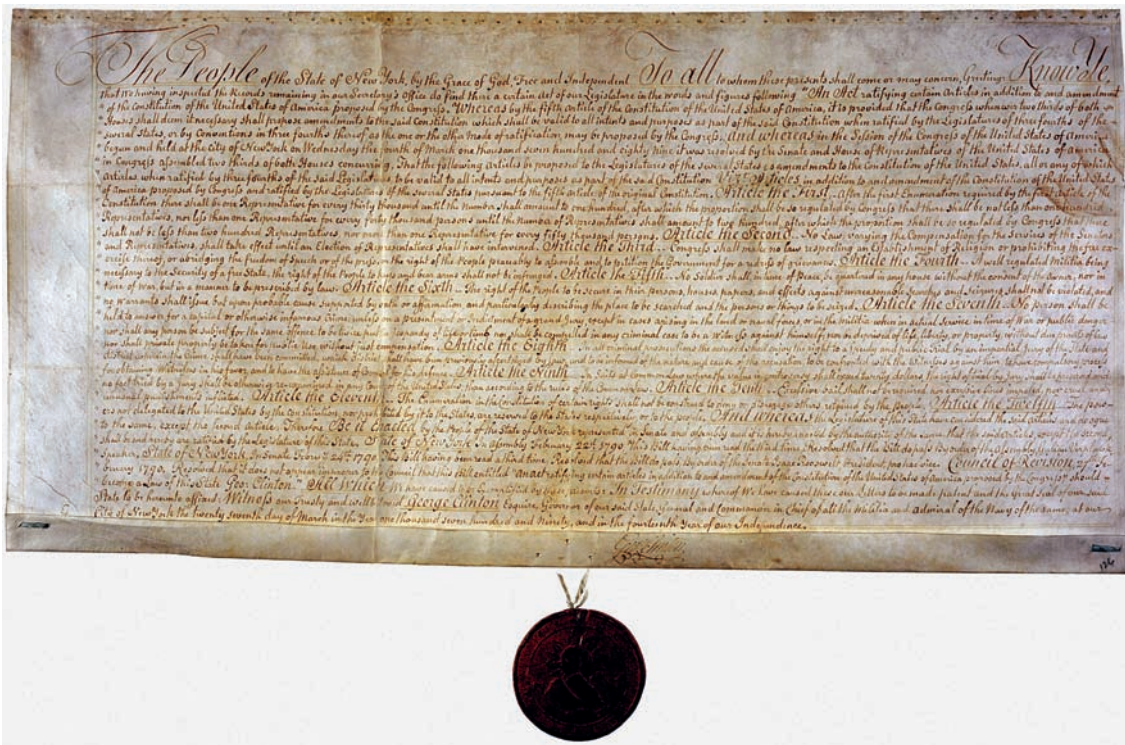 The People of the State of New York, by the Grace of God, Free and Independent To all to whom these presents shall come or may concern, Greeting: Know Ye,
that We having inspected the Records remaining in our Secretary's Office do find there a certain Act of our Legislature in the words and figures following "An Act ratifying certain Articles in addition to and amendment
of the Constitution of the United States of America proposed by the Congress. Whereas by the fifth Article of the Constitution of the United States of America, it is provided that the Congress whenever two thirds of both
Houses shall deem it necessary shall propose amendments to the said Constitution which shall be valid to all intents and purposes as part of the said Constitution when ratified by the Legislatures of three fourths of the
several States, or by Conventions in three fourths thereof as the one or the other mode of ratification may be proposed by the Congress. And whereas in the Session of the Congress of the United States of America
begun and held at the City of New York on Wednesday the fourth of March one thousand seven hundred and eighty nine it was resolved by the Senate and House of Representatives of the United States of America
in Congress assembled two thirds of both Houses concurring, That the following Articles be proposed to the Legislatures of the several States as amendments to the Constitution of the United States, all or any of which
articles when ratified by three fourths of the said Legislatures to be valid to all intents and purposes as part of the said Constitution Articles in addition to and amendment of the Constitution of the United States
of America proposed by Congress and ratified by the Legislatures of the several States pursuant to the fifth article of the original Constitution. Article the First. After the first Enumeration required by the first article of the
Constitution there shall be one Representative for every thirty thousand until the number shall amount to one hundred, after which the proportion shall be so regulated by Congress that there shall be not less than one hundred
Representatives, nor less than one Representative for every forty thousand persons until the number of Representatives shall amount to two hundred, after which the proportion shall be so regulated by Congress that there
shall not be less than two hundred Representatives than one Representative for every fifty thousand persons. Article the Second. No Law, varying the Compensation for the Services of the Senators
and Representatives, shall take effect until an Election of Representatives shall have intervened. Article the Third. Congress shall make no law respecting an establishment of Religion or prohibiting the free ex-
ercise thereof, or abridging the freedom of Speech or of the press or the right of the People peaceably to assemble and to petition the Government for a redress of grievances. Article the Fourth. A well regulated Militia being
necessary to the Security of a free State, the right of the People to keep and bear arms shall not be infringed. Article the Fifth. No Soldier shall in time of peace, be quartered in any house without the consent of the owner, nor in
time of war, but in a manner to be prescribed by law. Article the Sixth. The right of the People to be secure in their persons, houses, papers, and effects against unreasonable searches and seizures shall not be violated, and
no warrants shall issue but upon probable cause, supported by oath or affirmation, and particularly describing the place to be searched and the persons or things to be seized. Article the Seventh. No person shall be
held to answer for a capital or otherwise infamous Crime, unless on a presentment or indictment of a grand Jury, except in cases arising in the land or naval forces, or in the militia when in actual Service in time of War or public danger
nor shall any person be subject for the same offence to be twice put in jeopardy of life or limb, nor shall be compelled in any criminal case to be a Witness against himself, nor be deprived of life, liberty, or property, without due process of law
nor shall private property be taken for public Use, without just compensation. Article the Eighth. the accused shall enjoy the right to a speedy and public trial by an impartial Jury of the State and
district wherein the Crime shall have been committed, which district shall have been previously ascertained by law, and to be informed of the nature and cause of the accusation, to be
for obtaining Witnesses in his favor, and to have the assistance of Article the Ninth. In Suits at common law where the value in controversy shall exceed twenty dollars, the right of trial by Jury shall be preserved, and
no fact tried by a Jury shall be otherwise re-examined in any Court of the United States than according to the rules of the Common law. Article the Tenth. Excessive bail shall not be required nor excessive fines imposed, nor cruel and
unusual punishments inflicted. Article the Eleventh. The Enumeration in the Constitution of certain rights shall not be construed to deny or disparage others retained by the people. Article the Twelfth. The pow-
ers not delegated to the United States by the constitution, nor prohibited by it to the States, are reserved to the States respectively, or to the people. And whereas the Legislature of this State have considered the said Articles and do agree
to the same, except the second Article. Therefore Be it Enacted by the People of the State of New York represented in Senate and Assembly and it is hereby enacted by the authority of the same, that the said articles, except the second
shall be and hereby are ratified by the Legislature of this State. State of New York In Assembly February 22d 1790. This Bill having been read the third time, Resolved that the Bill do pass. By order of the Assembly,
Speaker. State of New York In Senate Feby 24th 1790. This Bill having been read a third time, Resolved that the Bill do pass. By order of the Senate. Isaac Roosevelt President pro hac vice. Council of Revision 27 Fe-
bruary 1790. Resolved that it does not appear improper to the Council that this Bill entitled "An act ratifying certain articles in addition to and amendment of the Constitution of the United States of America, proposed by the Congress" should
become a Law of this State. Geo: Clinton. All which We have caused to be exemplified by these presents. In Testimony whereof We have caused these our letters to be made patent and the Great Seal of our said
State to be hereunto affixed. Witness our trusty and well beloved George Clinton Esquire, Governor of our said State, General and Commander in Chief of all the Militia and Admiral of the Navy of the same, at our
City of New York the twenty seventh day of March in the Year one thousand seven hundred and Ninety, and in the fourteenth Year of our Independence.
Geo: Clinton
126